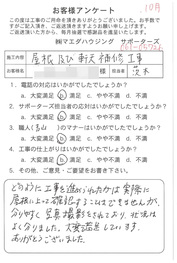 10月
お客様アンケート
この度は工事のご用命を賜りありがとうございました。お手数で
すがご記入頂き、ご返送頂きますようお願い申し上げます。
ご返送頂いた方から、毎月抽選で感謝品を進呈いたします。
㈱マエダハウジング サポーターズ
工事名 屋根及び軒天補修工事
お名前 様 担当者 茨木
1. 電話の対応はいかがでしたでしょうか?
a. 大変満足 b. 満足 c. やや不満 d. 不満
2. サポーターズ担当者の応対はいかがでしたでしょうか?
a. 大変満足 b. 満足 c. やや不満 d. 不満
3. 職人(青山)のマナーはいかがでしたでしょうか?
a. 大変満足 b. 満足 c. やや不満 d. 不満
4. 工事の仕上がりはいかがでしたでしょうか?
a. 大変満足 b. 満足 c. やや不満 d. 不満
5. その他、ご意見・ご要望をお書き下さい。
どのように工事を進めていたかは実際に
屋根に上って確認することはできませんが、
分りやすく写真撮影をされており、状況は
よく分りました。大変満足しています。
ありがとうございました。